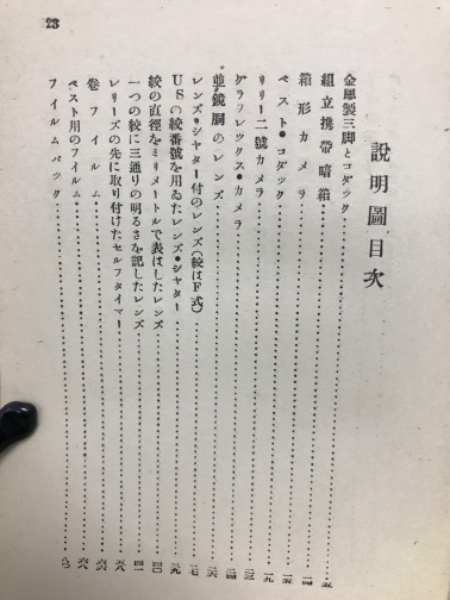 23
說明圖目次
金屬製三脚とコダック……五
組立携帶暗箱……一四
箱形カメラ……一五
ベスト・コダック……一九
リリー二號カメラ……二三
グラフレックス・カメラ……二四
鏡胴のレンズ……二六
レンズ・シャター付のレンズ(絞はF式)……二七
USの絞番號を用ゐたレンズ・シャター……二九
絞の直徑をミリメートルで表はしたレンズ……四〇
一つの絞に三通りの明るさを記したレンズ……四一
レリーズの先に取り付けたセルフタイマー……五八
卷フィルム……六六
ベスト用のフィルム……六八
フイルムパック……